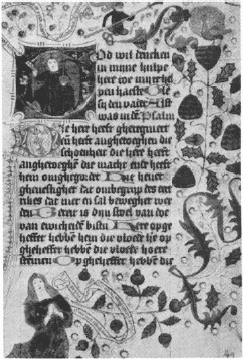 Od wil dencken
in mine hulpe
here toe mi te hel
pen haeste Gle
si den vader Als t
was in dē Psalm
Die here heeft gheregneert
hi heeft aenghetoghen die
schoenheit die here heeft
aenghetoghen die macht ende heeft
hem omghegordt Die heuet
ghevesticht dat ombegrijp des eert
rikes dat niet en sal beweghet wer
den Gerer is dijn stoel van doe
van ewicheit bistu Here opge
heffet hebbē hem die vloede sie op
gheheffet hebbē die vloede hoere
stēmen Op gheheffet hebbē die